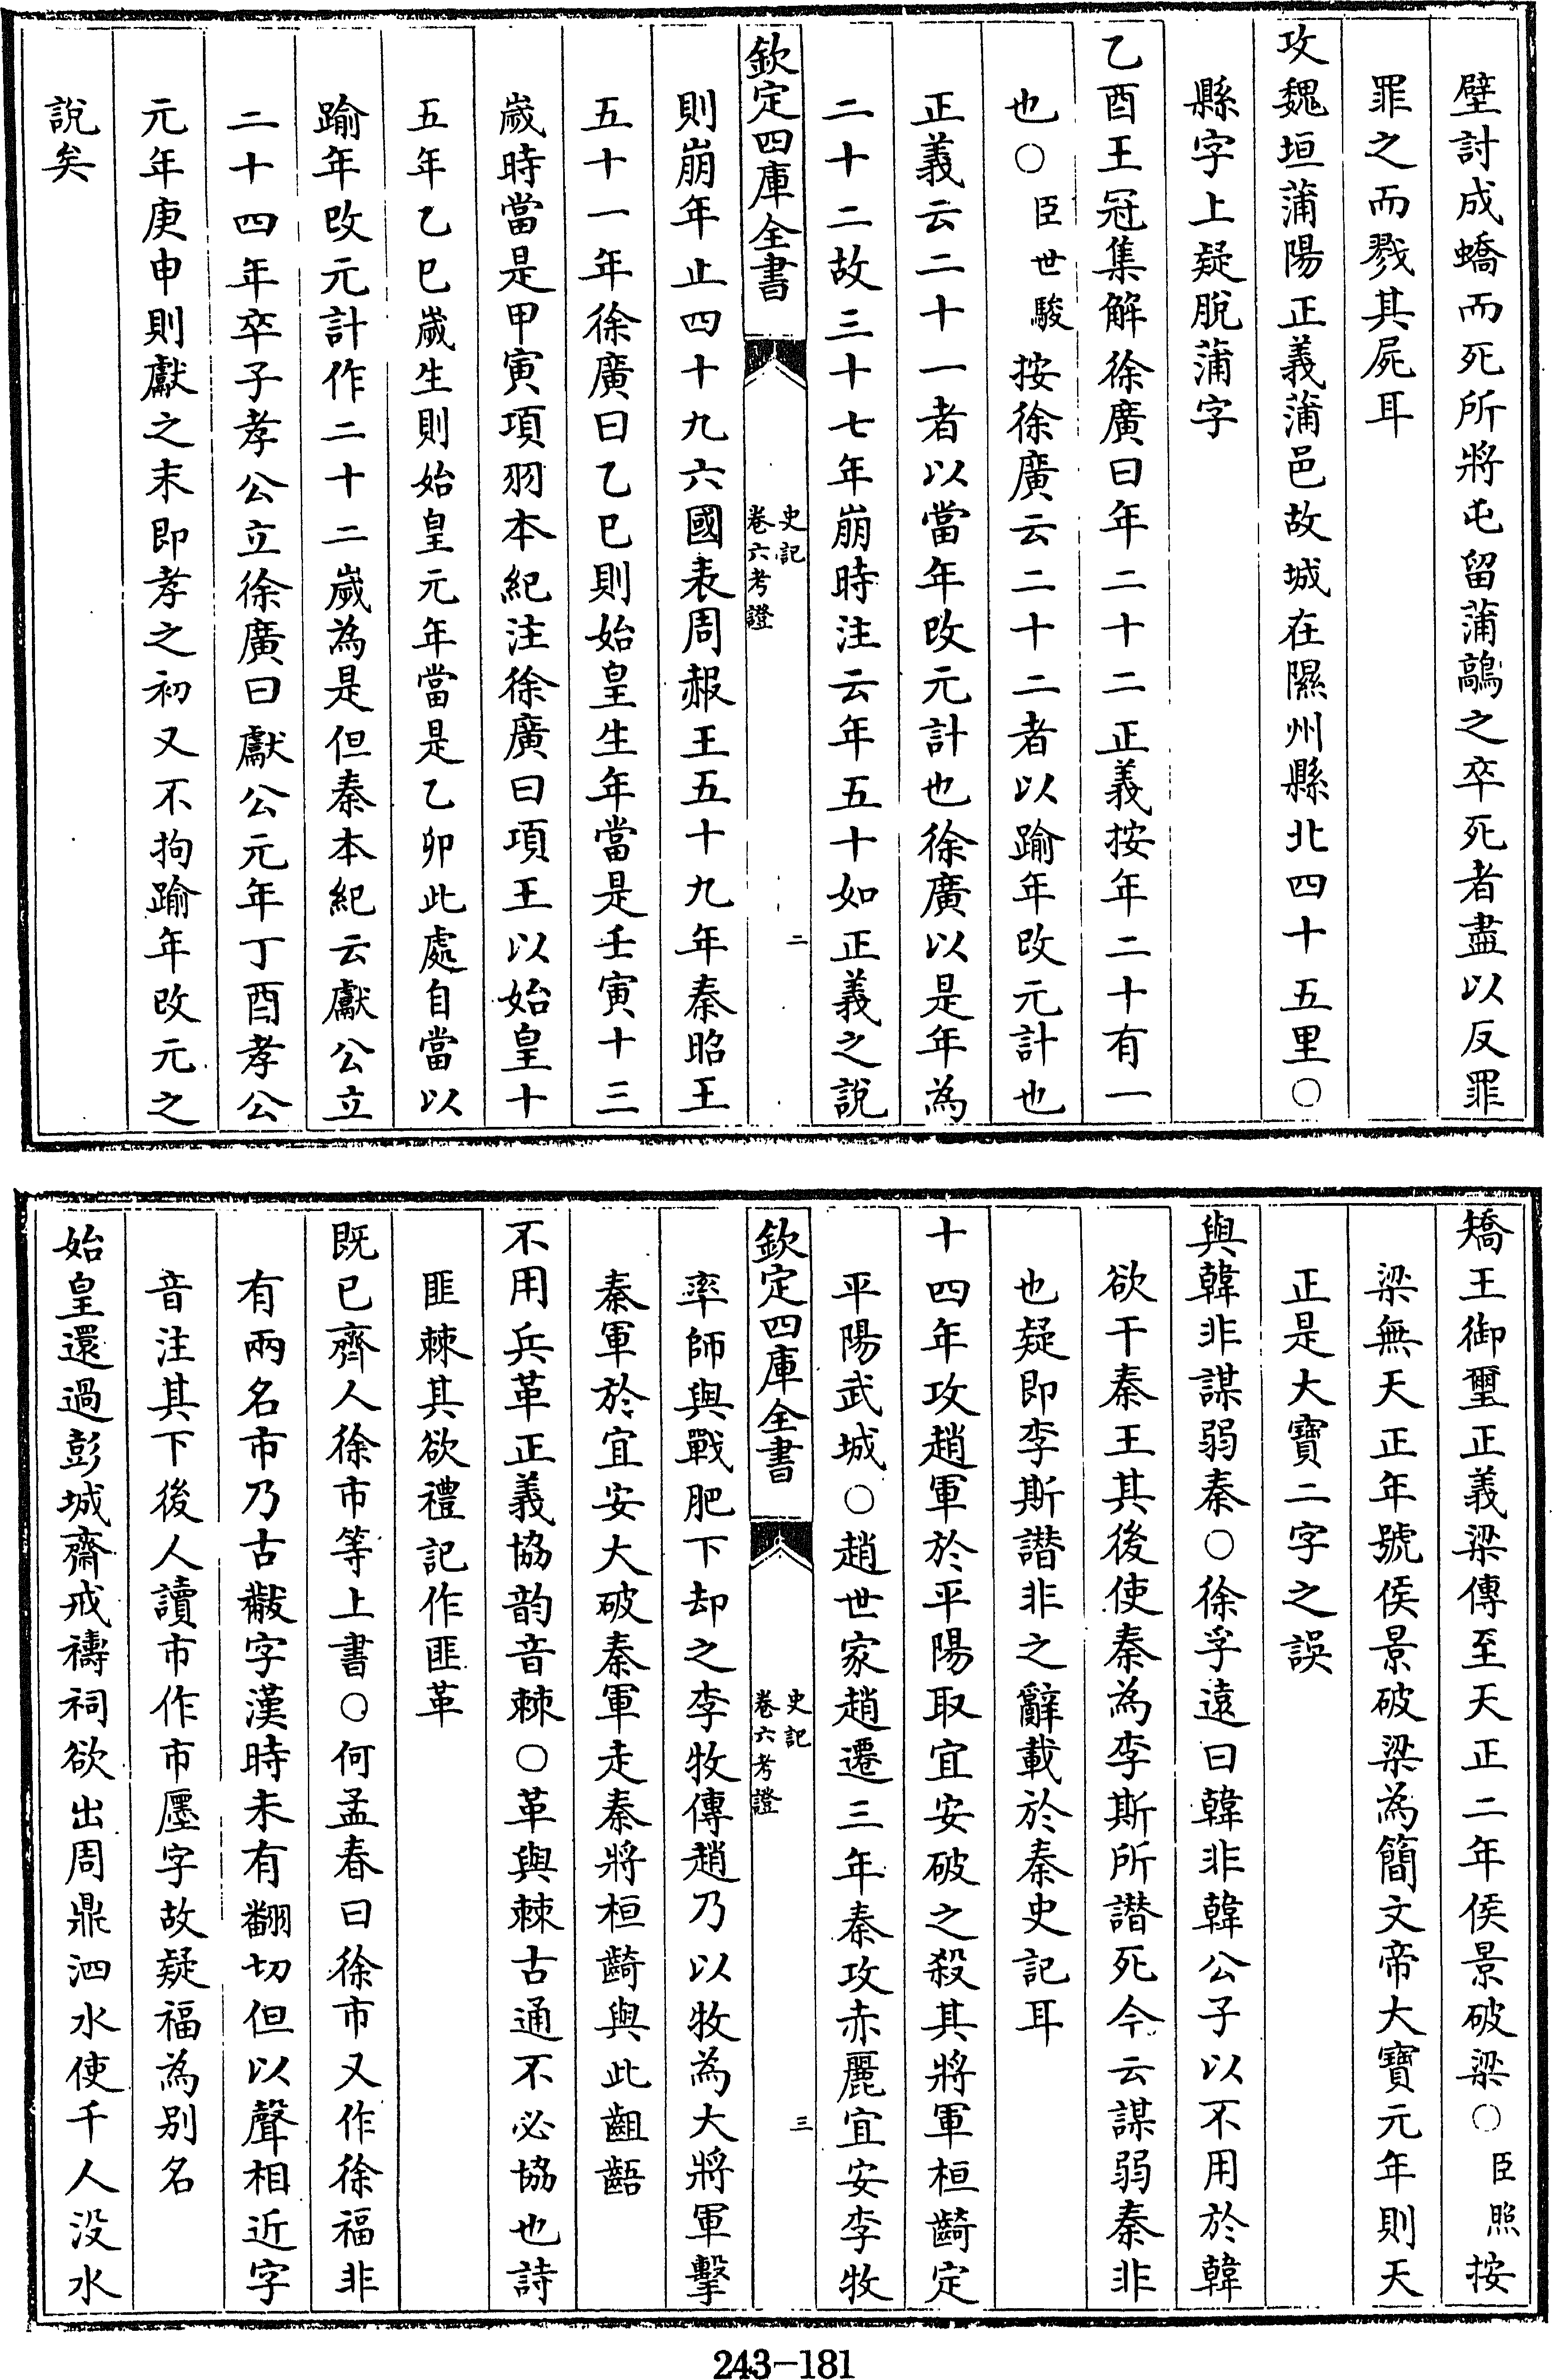 壁討成蟜而死所將屯留蒲鶮之卒死者盡以反罪
罪之而戮其屍耳
攻魏垣蒲陽正義蒲邑故城在隰州縣北四十五里〇
縣字上疑脫蒲字
乙酉王冠集解徐廣曰年二十二正義按年二十有一
也〇臣世駿按徐廣云二十二者以踰年改元計也
正義云二十一者以當年改元計也徐廣以是年為
二十二故三十七年崩時注云年五十如正義之說
欽定四庫全書
史記
卷六考證
二
則崩年止四十九六國表周赧王五十九年秦昭王
五十一年徐廣曰乙巳則始皇生年當是壬寅十三
歲時當是甲寅項羽本紀注徐廣曰項王以始皇十
五年乙巳歲生則始皇元年當是乙卯此處自當以
踰年改元計作二十二歲為是但秦本紀云獻公立
二十四年卒子孝公立徐廣曰獻公元年丁酉孝公
元年庚申則獻之末即孝之初又不拘踰年改元之
說矣
矯王御璽正義梁傳至天正二年侯景破梁〇臣照按
梁無天正年號侯景破梁為簡文帝大寶元年則天
正是大寶二字之誤
與韓非謀弱秦〇徐孚遠曰韓非韓公子以不用於韓
欲干秦王其後使秦為李斯所譖死今云謀弱秦非
也疑即李斯譖非之辭載於秦史記耳
十四年攻趙軍於平陽取宜安破之殺其將軍桓齮定
平陽武城〇趙世家趙遷三年秦攻赤麗宜安李牧
欽定四庫全書
史記
卷六考證
三
率師與戰肥下却之李牧傳趙乃以牧為大將軍擊
秦軍於宜安大破秦軍走秦將桓齮與此齟齬
不用兵革正義協韵音棘〇革與棘古通不必協也詩
匪棘其欲禮記作匪革
既已齊人徐市等上書〇何孟春曰徐市又作徐福非
有兩名市乃古黻字漢時未有翻切但以聲相近字
音注其下後人讀市作市廛字故疑福為別名
始皇還過彭城齋戒禱祠欲出周鼎泗水使千人没水
243-181